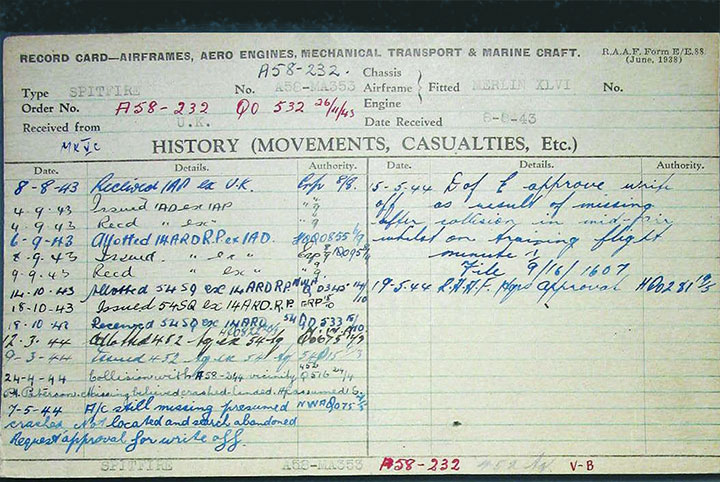 RECORD CARD—AIRFRAMES, AERO ENGINES, MECHANICAL TRANSPORT & MARINE CRAFT.
R.A.A.F. Form E/E.88
(June, 1938)
A58-232.
Type SPITFIRE No. A58-MA353
Chassis
Airframe
Engine
Fitted MERLIN XLVI No.
Order No. A58-232 QO 532 26/11/43
Received from U.K. Date Received 8-8-43
MK VC
HISTORY (MOVEMENTS, CASUALTIES, Etc.)
Date. Details. Authority.
8-8-43 Received 1AP ex U.K.
4-9-43 Issued 1AD ex 1AP
4-9-43 Recd " ex "
6-9-43 Allotted 14 ARD R.P. ex 1AD.
8-9-43 Issued. " ex "
9-9-43 Recd " ex "
14-10-43 Allotted 54 SQ ex 14 ARD.R.P.
18-10-43 Issued 54 SQ ex 14 ARD.R.P.
18-10-43 Received 54 SQ ex 14 ARD. QO 533
12-3-44 Allotted 452 ex 54
9-3-44 Issued 452 ex 54
24-4-44 Collision with vicinity
Missing believed crashed landed.
7-5-44 A/C still missing presumed
crashed. Not located and search abandoned
Request approval for write off.
Date. Details. Authority.
5-5-44 D of E approve write
off as result of missing
after collision in mid-air
whilst on training flight
minute 1
File 9/16/1607
19-5-44 R.A.A.F. Hqrs approval
SPITFIRE A58-MA353 A58-232 V-B